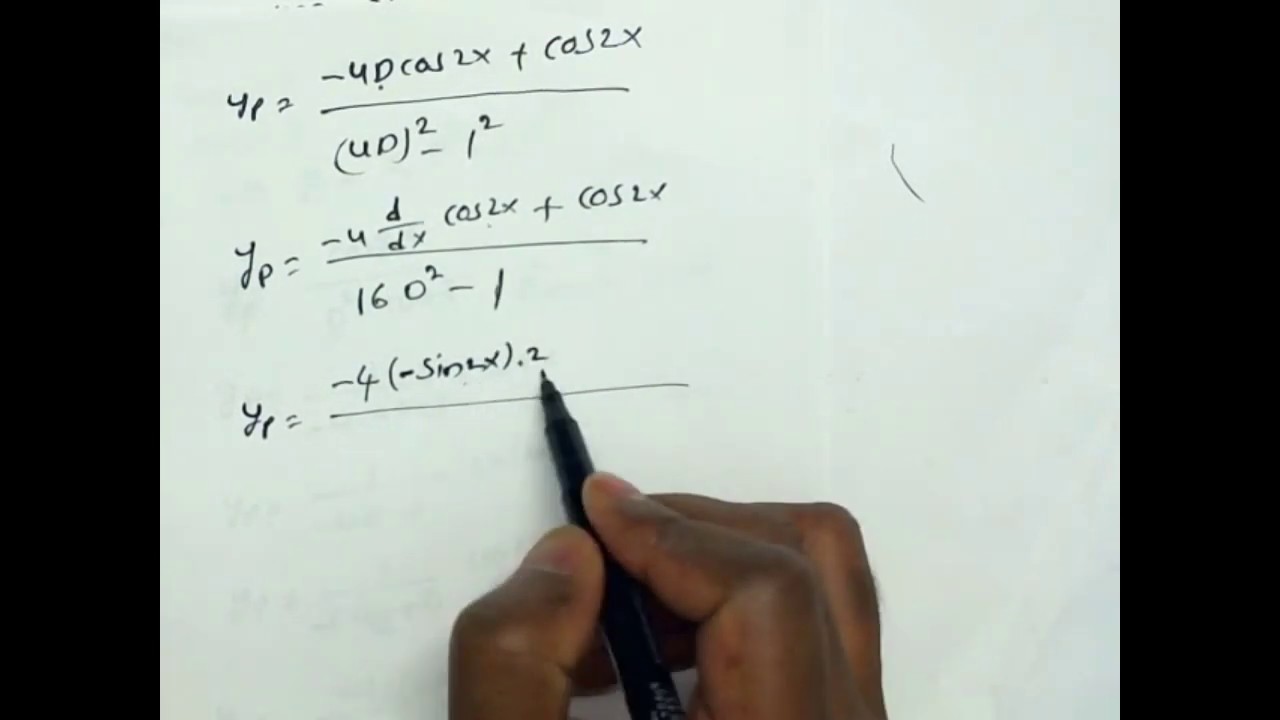 yp = -4D cos2x + cos2x
(4D)² - 1²
yp = -4 d/dx cos2x + cos2x
16 D² - 1
yp = -4 (-sin2x).2